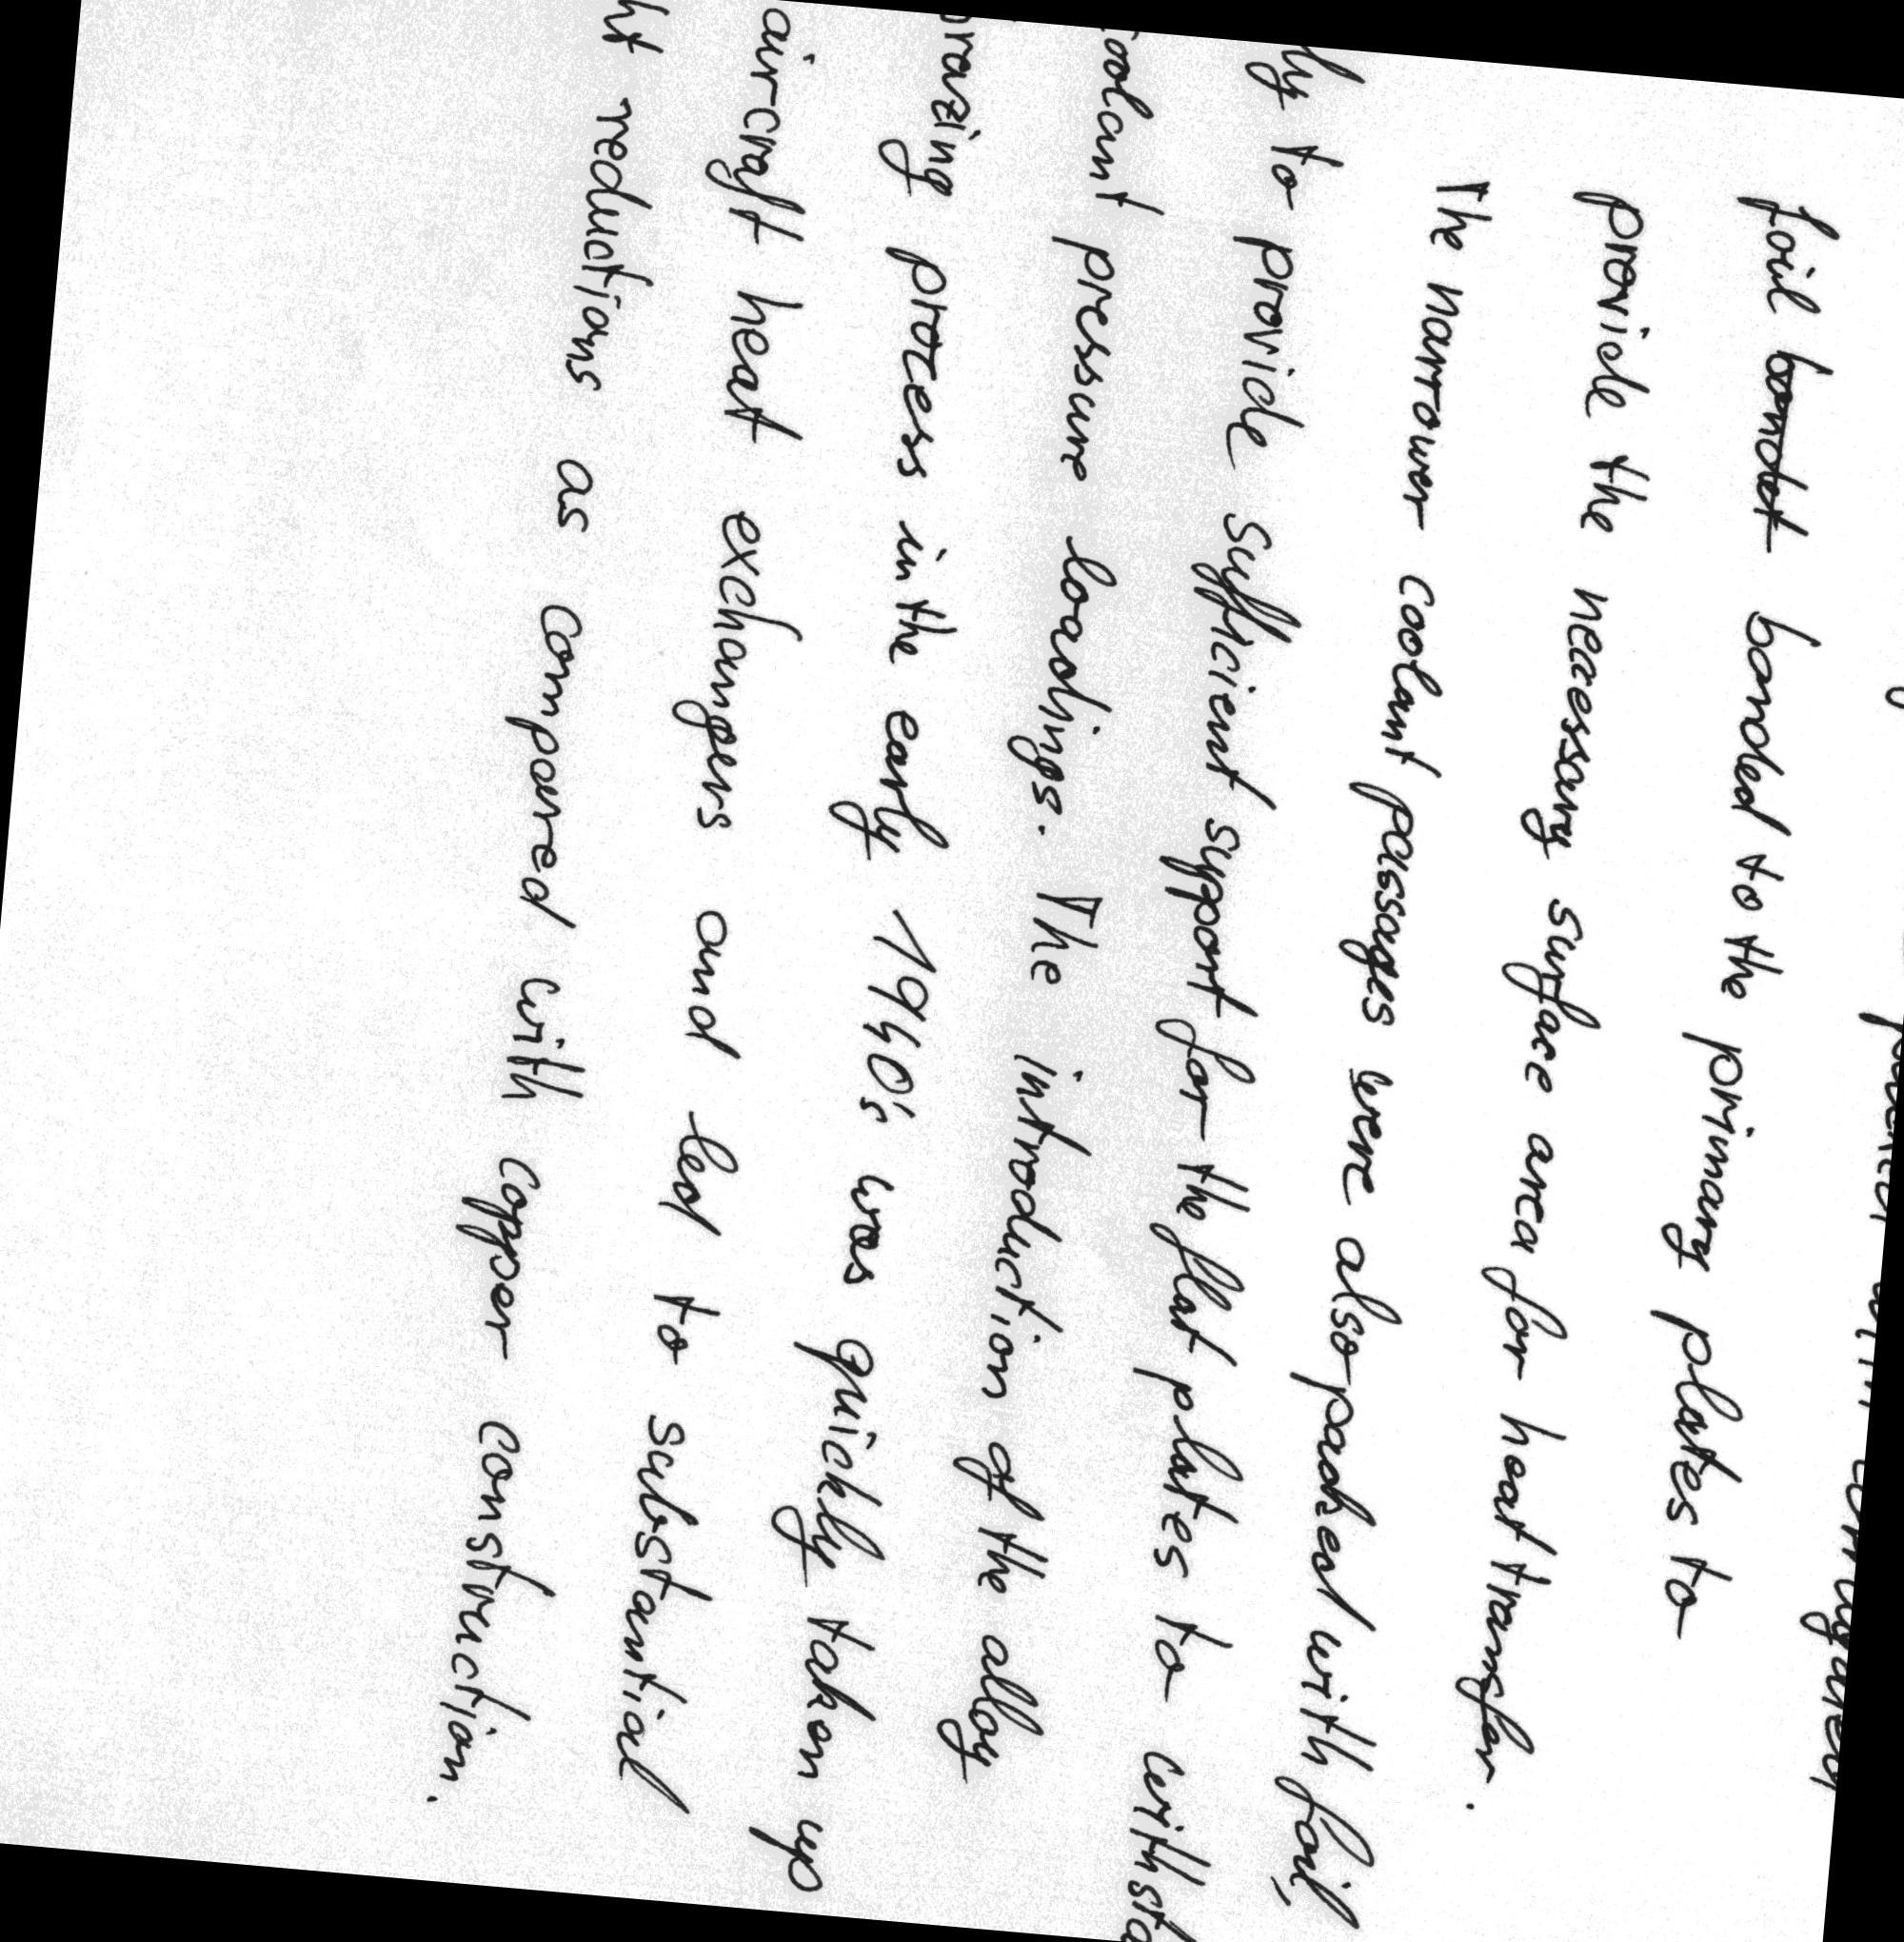 foil bonded to the primary plates to
provide the necessary surface area for heat transfer.
The narrower coolant passages were also packed with foil,
to provide sufficient support for the flat plates to
coolant pressure loadings. The introduction of the alloy
brazing process in the early 1940's was quickly taken up
aircraft heat exchangers and led to substantial
reductions as compared with copper construction.